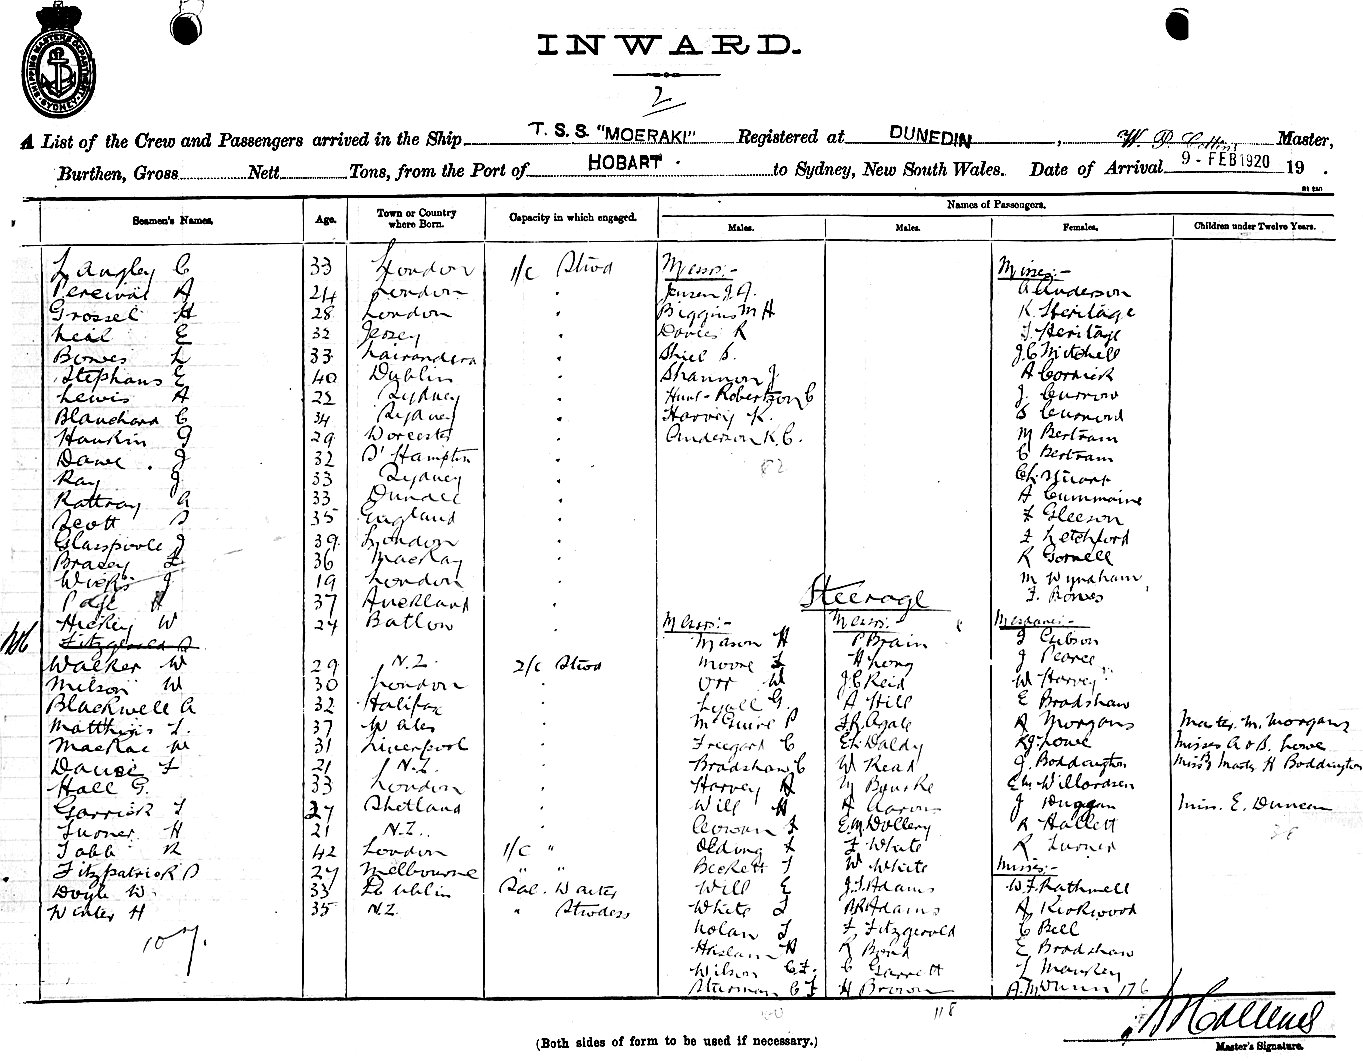 SHIPPING MASTERS DEPARTMENT SYDNEY
INWARD.
2
A List of the Crew and Passengers arrived in the Ship T. S. S. "MOERAKI" Registered at DUNEDIN, W. D. Collins Master,
Burthen, Gross Nett Tons, from the Port of HOBART. to Sydney, New South Wales. Date of Arrival 9 - FEB 1920 19 .
Seamen's Names. Age. Town or Country where Born. Capacity in which engaged. Names of Passengers.
Males. Males. Females. Children under Twelve Years.
Langley C 33 London 1/C Stwd Messrs:- Misses:-
Percival A 24 London " Jensen J. J. A Anderson
Grossel H 28 London " Biggins M H K Heritage
Neil E 32 Jersey " Davies R J Heritage
Bowes L 33 " Shiel S. J C Mitchell
Stephans E 40 Dublin " Shannon J. A Cornick
Lewis A 22 Sydney " Hunt-Robertson C J. Currow
Blanchard C 34 Sydney " Harvey K.
Hankin J 29 Worcester " Anderson K. C. M Bertram
Dawe. J 32 S' Hampton " 82 C Bertram
Ray J 33 Sydney " Stuart
Rattray A 33 Dundee " A Cummine
Scott S 35 England " F Gleeson
Glasspoole J 39 London " F Ketchford
Bracey F 36 MacKay " R Gornell
Wicks J 19 London " M Wyndham
Page H 37 Auckland " Steerage F. Bowes
Hickey W 24 Batlow " Messrs:- Messrs:- Mesdames:-
Fitzgerald S Mason H P Brain J Gibson
Walker W 29 N.Z. 2/C Stwd Moore F H Long J Pearce
Milson W 30 London " Orr W J C Reid W Harvey
Blackwell A 32 Halifax " Lyall G A Hill E Bradshaw
Matthias L. 37 Wales " McGuire P F. R. Agale R Morgans Master M. Morgans
MacRae W 31 Liverpool " Freegard C E L Daldy R J Lowe Misses A & S. Lowe
Davies F 21 N.Z. " Bradshaw C W Read J. Boddington Miss & Master H Boddington
Hall G. 33 London " Harvey A M Bourke E M Willardsen
Garrick T 27 Shetland " Will H A Aarons J Duggan Miss. E. Duncan
Turner H 21 N.Z. " E M Dollery R Hallett
Tabb R 42 London 1/C " Olding F White R Turner
Fitzpatrick D 27 Melbourne " " Beckett T W White Misses:-
Doyle W. 33 Dublin Sal. Waiter Will E J. J. Adams W. F. Rathmell
Winter H 35 N.Z. " Stwdess White L A R Adams A. Kirkwood
107. Nolan J F Fitzgerald C Bell
Haslam H R Bond E Bradshaw
Wilson C. F. C Garrett L Mankey
Sturman C F H Brown A. M Dunn 176
118
(Both sides of form to be used if necessary.)
Master's Signature.